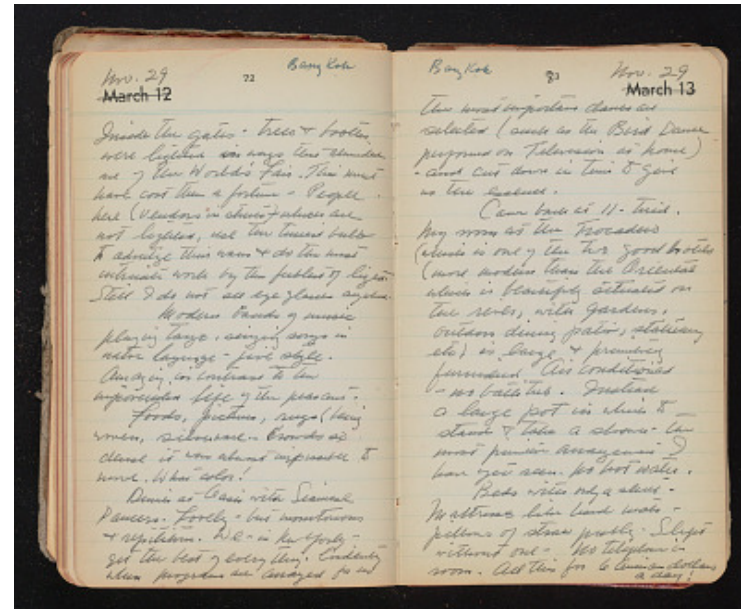 Nov. 29 72 Bang Kok
March 12
Inside the gates - trees & booths
were lighted in ways that reminded
me of the Worlds Fair. This must
have cost them a fortune - People
here (vendors in streets) which are
not lighted, use the tiniest bulbs
to advertize their wares & do the most
intricate work by the feeblest of lights.
Still I do not see eye glasses anywhere.
Modern bands of music
playing tango, singing songs in
native language - jive style.
Amazing in contrast to the
impoverished life of the peasant.
Foods, pictures, rugs (being
woven, silverware. Crowds so
dense it was almost impossible to
move. What color!
Dinner at Oasis with Siamese
Dancers. Lovely - but monotonous
& repetitious. We - in New York -
get the best of everything. Evidently
when programs are arranged for us
Bang Kok 73 Nov. 29
March 13
the most important dances are
selected (such as the Bird Dance
performed on Television at home)
- and cut down in time to give
us the essence.
Came back at 11 - tired.
My room at the Trocadero
(which is one of the two good hotels
(more modern than the Oriental
which is beautifully situated on
the river, with gardens,
outdoor dining patio, stationery
etc) is large & primitively
furnished. Air conditioned
- no bath tub. Instead
a large pot in which to
stand & take a shower - the
most primitive arrangement I
have yet seen. No hot water.
Beds with only a sheet -
Mattress like hard wood -
pillows of straw mostly - Slept
without one - No telephone in
room. All this for 6 American dollars
a day!